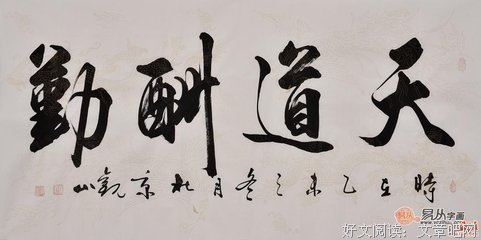 天道酬勤
時在乙未之冬月北京觀山
易从字画
好文阅读：文章吧网